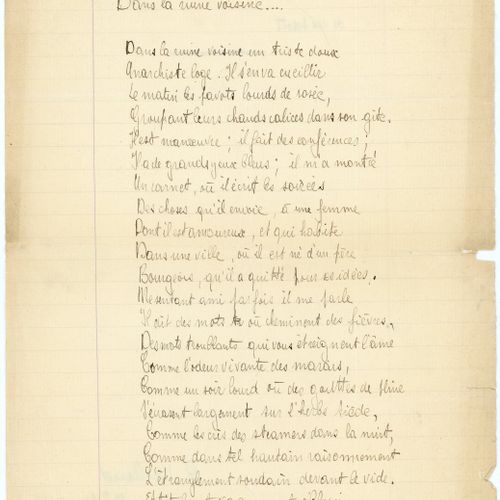 Dans la ruine voisine....
Dans la ruine voisine un triste doux
Anarchiste loge. Il s'en va cueillir
Le matin les pavots lourds de rosée,
Groupant leurs chauds calices dans son gîte.
Il est manœuvre ; il fait des conférences ;
Il a de grands yeux bleus ; il m'a montré
Un carnet, où il écrit les soirées
Des choses qu'il envoie, à une femme
Dont il est amoureux, et qui habite
Dans une ville, où il est né d'un père
Bourgeois, qu'il a quitté pour ses idées.
Me sentant ami parfois il me parle
Il dit des mots où cheminent des fièvres,
Des mots troublants qui vous étreignent l'âme
Comme l'odeur vivante des marais,
Comme un soir lourd où des gouttes de pluie
S'écrasent largement sur l'herbe tiède,
Comme les cris des steamers dans la nuit,
Comme dans tel hautain raisonnement
L'étranglement soudain devant le vide.